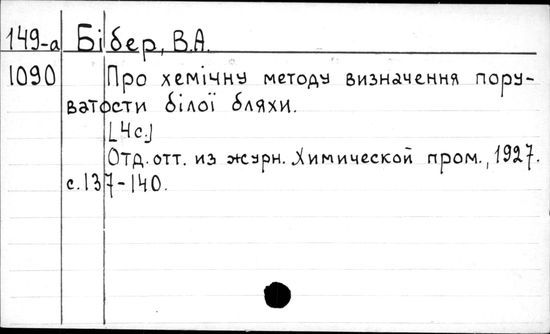 149-а Бібер, В.А.
1090 Про хемічну методу визначення пору-
ватости білої бляхи.
[4с.]
Отд. отт. из журн. Химической пром., 1927.
с.137-140.